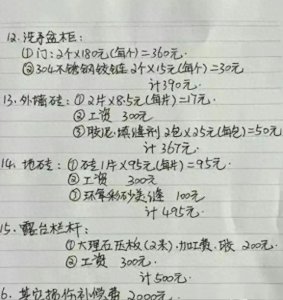 12. 洗手盆柜:
①门: 2个×180元(每个)=360元.
②304不锈钢铰链 2个×15元(每个)=30元
计390元.
13. 外墙砖: ①2片×8.5元(每片)=17元.
②工资 300元
③胶泥.填缝剂 2包×25元(每包)=50元
计367元.
14. 地砖: ①砖1片×95元(每片)=95元.
②工资 300元
③环氧彩砂美缝 100元
计495元.
15. 露台栏杆:
①大理石压板(2米).加工费.胶 200元.
②工资 300元.
计500元.
6. 其它损伤补偿费 2000元.